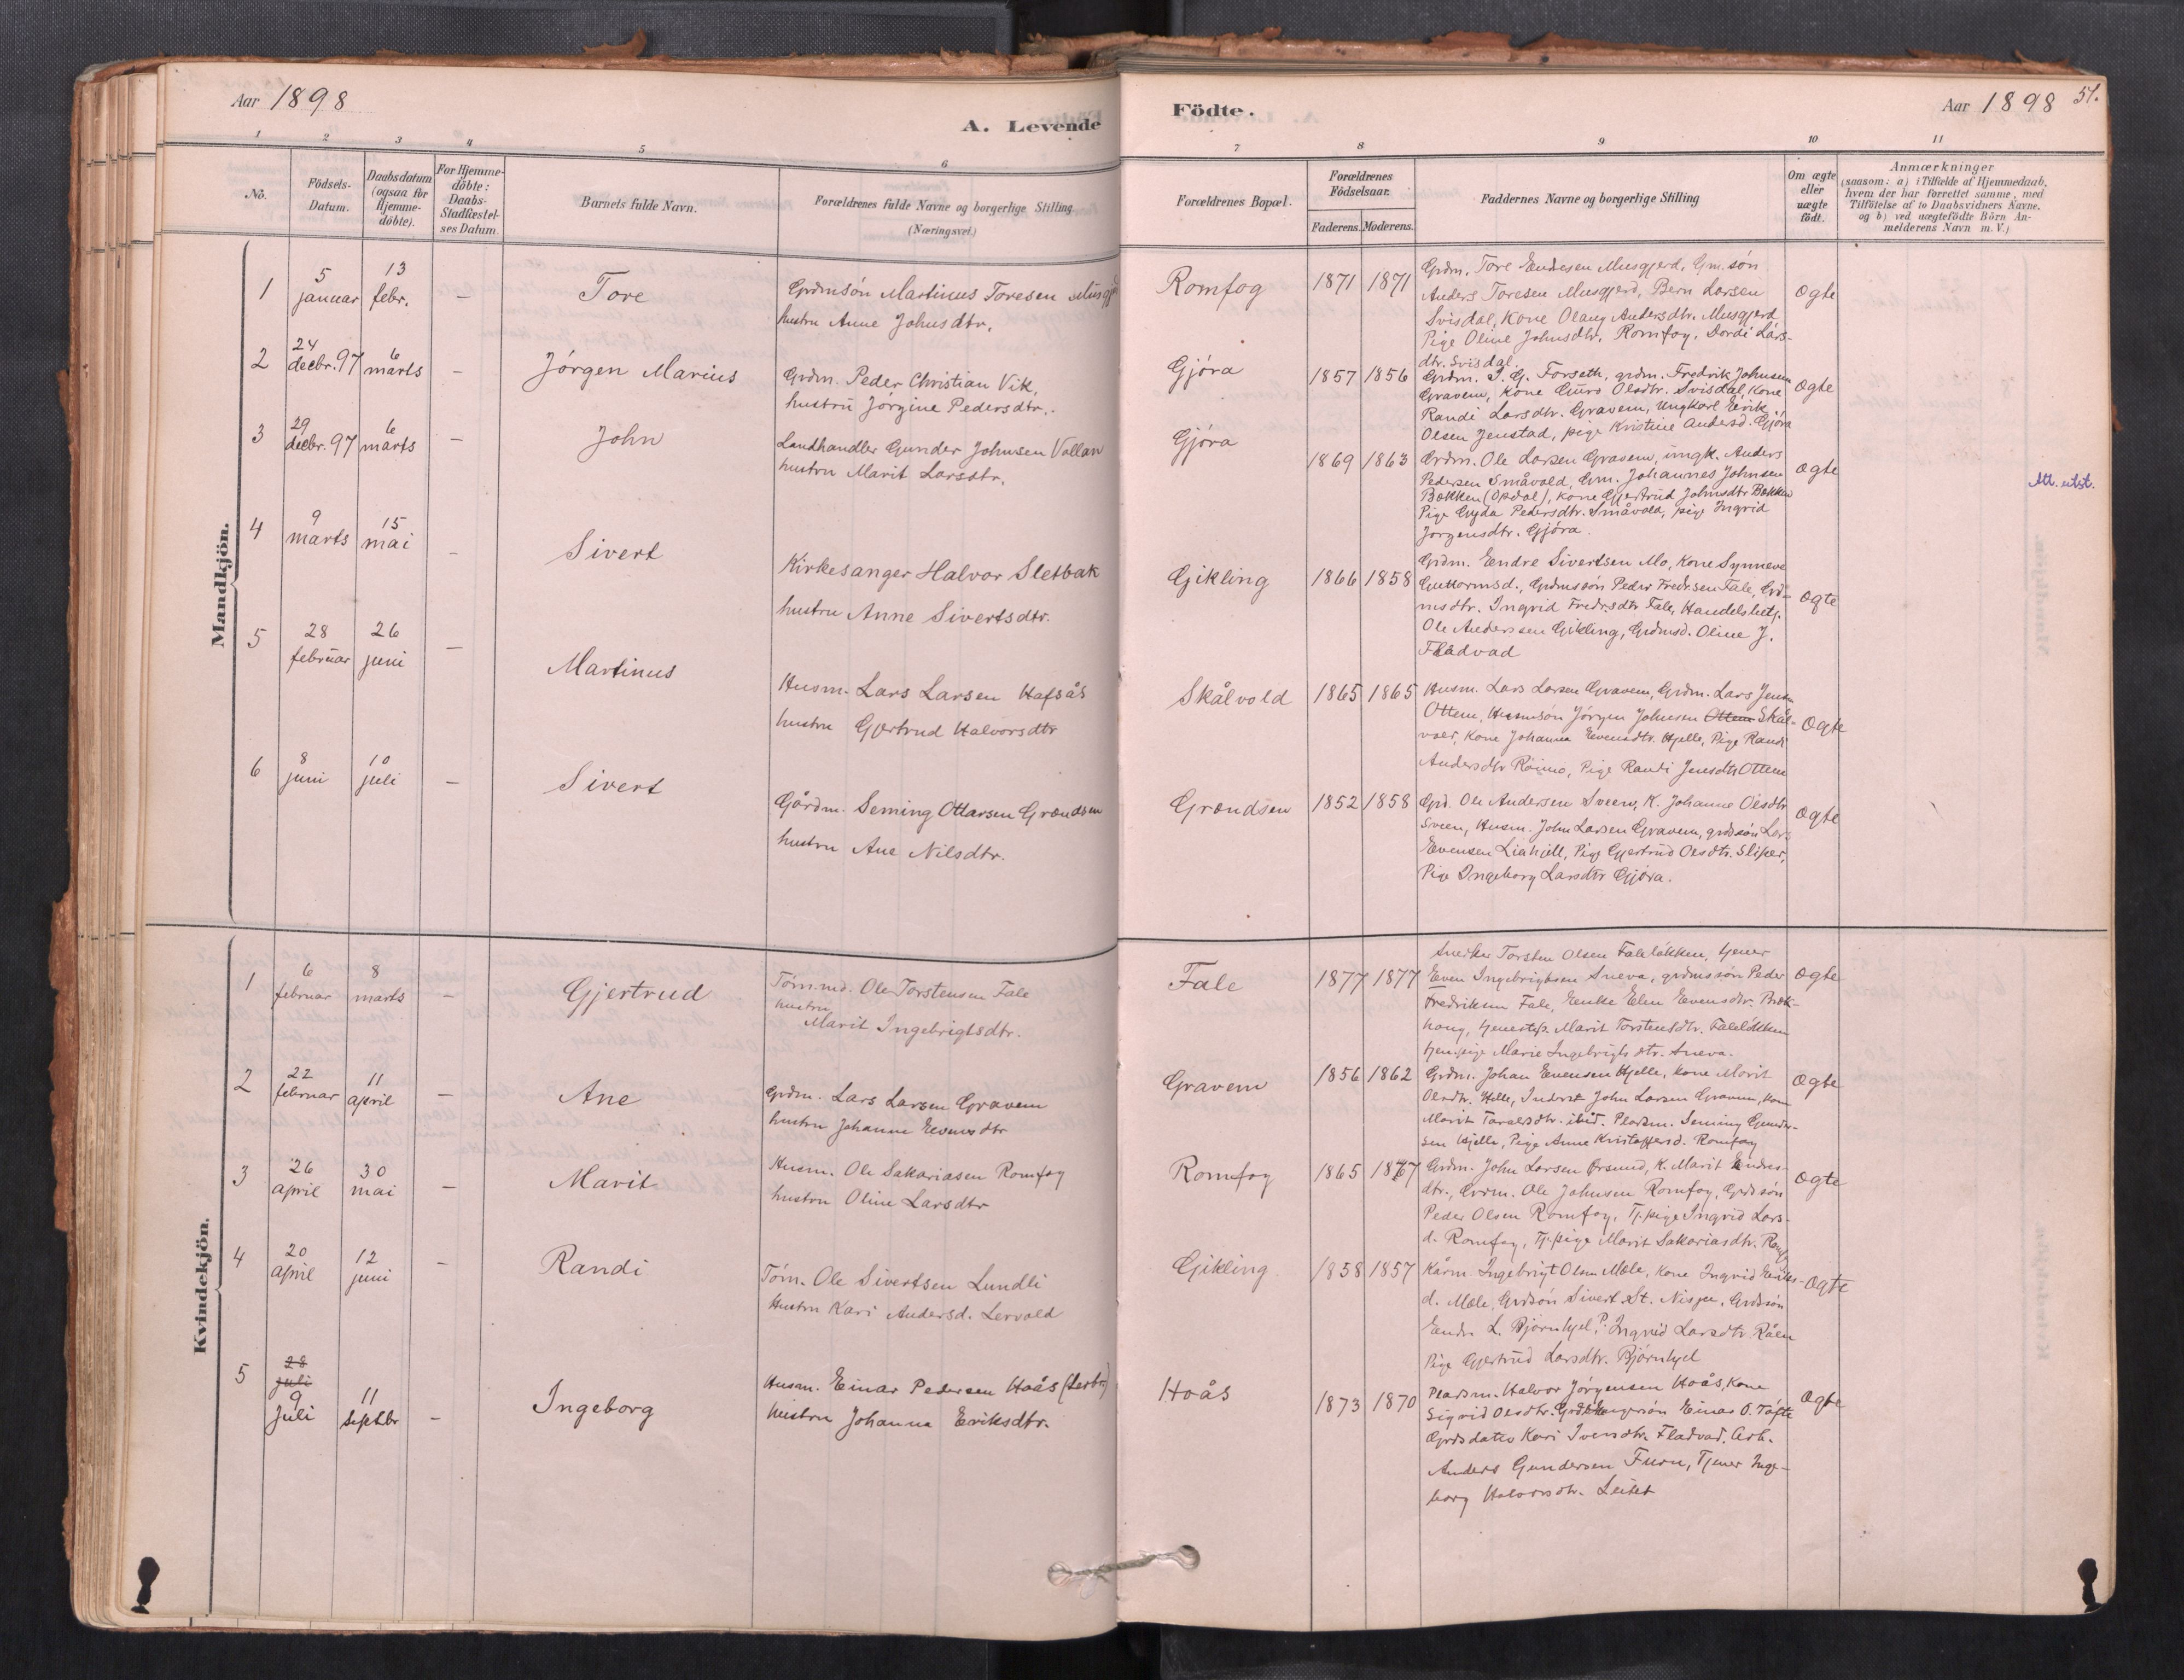 Aar 1898
A. Levende
Födte.
Aar 1898
51.
1 2 3 4 5 6 7 8 9 10 11
No.
Födsels-
Datum.
Daabsdatum
(ogsaa for
Hjemme-
döbte).
For Hjemme-
döbte:
Daabs-
Stadfæstel-
ses Datum.
Barnets fulde Navn.
Forældrenes fulde Navne og borgerlige Stilling
(Næringsvei.)
Forældrenes Bopæl.
Forældrenes
Födselsaar.
Faderens. Moderens.
Faddernes Navne og borgerlige Stilling
Om ægte
eller
uægte
födt.
Anmærkninger
(saasom: a) i Tilfælde af Hjemmedaab,
hvem der har forrettet samme, med
Tilföielse af to Daabsvidners Navne,
og b) ved uægtefödte Börn An-
melderens Navn m. V.)
Mandkjön.
1
5
januar
13
febr.
–
Tore
Grdmsön Martinus Toresen Musgjd
hustru Anne Johnsdtr.
Romfog
1871 1871
Grdm. Tore Endresen Musgjerd, Gm.sön
Anders Toresen Musgjerd, Bern Larsen
Svisdal, Kone Olaug Andersdtr. Musgjerd
Pige Oline Johnsdtr. Romfog, Dordi Lars-
dtr. Svisdal.
Ægte
2
24
decbr. 97
6
marts
–
Jörgen Marius
Grdm. Peder Christian Vik,
hustru Jörgine Pedersdtr.
Gjöra
1857 1856
Grdm. I. G. Forseth, grdm. Fredrik Johnsen
Gravem, Kone Guro Olsdtr. Svisdal, Kone
Randi Larsdtr. Gravem, Ungkarl Eirik
Olsen Jenstad, pige Kristine Andersd. Gjöra
Ægte
3
29
decbr. 97
6
marts
–
John
Landhandler Gunder Johnsen Vollan
hustru Marit Larsdtr.
Gjöra
1869 1863
Grdm. Ole Larsen Gravem, ungk. Anders
Pedersen Småvold, Grm. Johannes Johnsen
Bækken (Opdal), Kone Gjertrud Johnsdtr Bækken
Pige Gyda Pedersdtr. Småvold, pige Ingrid
Jörgensdtr. Gjöra.
Ægte
Att. utst.
4
9
marts
15
mai
–
Sivert
Kirkesanger Halvor Sletbak
hustru Anne Sivertsdtr.
Gikling
1866 1858
Grdm. Endre Sivertsen Mo, Kone Synneve
Guttormsd., Grdmssön Peder Fredrsen Fale, Grd-
msdtr. Ingrid Fredrsdtr Fale, Handelsbetj.
Ole Anderssen Gikling, Grdmsd. Oline J.
Fladvad
Ægte
5
28
februar
26
juni
–
Martinus
Husm. Lars Larsen Hafsås
hustru Gjertrud Halvorsdtr
Skålvold
1865 1865
Husm. Lars Larsen Gravem, Grdm. Lars Jensen
Ottem, Husmsön Jörgen Johnsen Ottem Skål-
vold, Kone Johanna Evensdtr. Hjelle, Pige Randi
Andersdtr Röimo, Pige Randi Jensdtr Ottem
Ægte
6
8
juni
10
juli
–
Sivert
Gårdm. Seming Ottarsen Grændsen
hustru Ane Nilsdtr.
Grændsen
1852 1858
Grd. Ole Andersen Sveen, K. Johanne Olsdtr
Sveen, Husm. John Larsen Gravem, grdsön Lars
Evensen Liahjell, Pige Gjertrud Olsdtr. Sliper,
Pige Ingeborg Larsdtr Gjöra.
Ægte
Kvindekjön.
1
6
februar
8
marts
–
Gjertrud
Töm.md. Ole Torstensen Fale
hustru
Marit Ingebrigtsdtr.
Fale
1877 1877
Snedker Torsten Olsen Falelökken, tjener
Even Ingebrigtsen Sneva, grdmssön Peder
Fredriksen Fale, Enke Elen Evensdtr. Bræk-
haug, tjenestep. Marit Torstensdtr. Falelökken
tjen.pige Marie Ingebrigtsdtr. Sneva.
Ægte
2
22
februar
11
april
–
Ane
Grdm. Lars Larsen Gravem
hustru Johanne Evensdtr
Gravem
1856 1862
Grdm. Johan Evensen Hjelle, Kone Marit
Olsdtr. Hjelle, Inderst John Larsen Gravem, Kone
Marit Toraldsdtr. ibid. Pladsm. Seming Gunder-
sen Hjelle, Pige Anne Kristoffersd. Romfog
Ægte
3
26
april
30
mai
–
Marit
Husm. Ole Sakariasen Romfog
hustru Oline Larsdtr
Romfog
1865 1867
Grdm. John Larsen Ørsund, K. Marit Endres-
dtr., Grdm. Ole Johnsen Romfog, Grdssön
Peder Olsen Romfog, Tj.pige Ingrid Lars-
d. Romfog, Tj.pige Marit Sakariasdtr. Romf.
Ægte
4
20
april
12
juni
–
Randi
Töm. Ole Sivertsen Lundli
Hustru Kari Andersd. Lervold
Gikling
1858 1857
Kårm. Ingebrigt Olsen Mæle, Kone Ingrid Eriks-
d. Mæle, Grdsön Sivert St. Nisjee, Grdssön
Endre L. Björnhjel, P. Ingrid Larsdtr. Råen
Pige Gjertrud Larsdtr. Björnhjel
Ægte
5
28
juli
9
Juli
11
Septbr
–
Ingeborg
Husm. Einar Pedersen Hoås
hustru Johanna Eriksdtr.
Hoås
1873 1870
Pladsm. Halvor Jörgensen Hoås, Kone
Sigrid Olsdtr. Einar O. Tofte
Grdsdatter Kari Iversdtr. Fladvad, Arb.
Anders Gundersen Furu, Tjener Inge-
borg Halvorsdtr. Leitet
Ægte